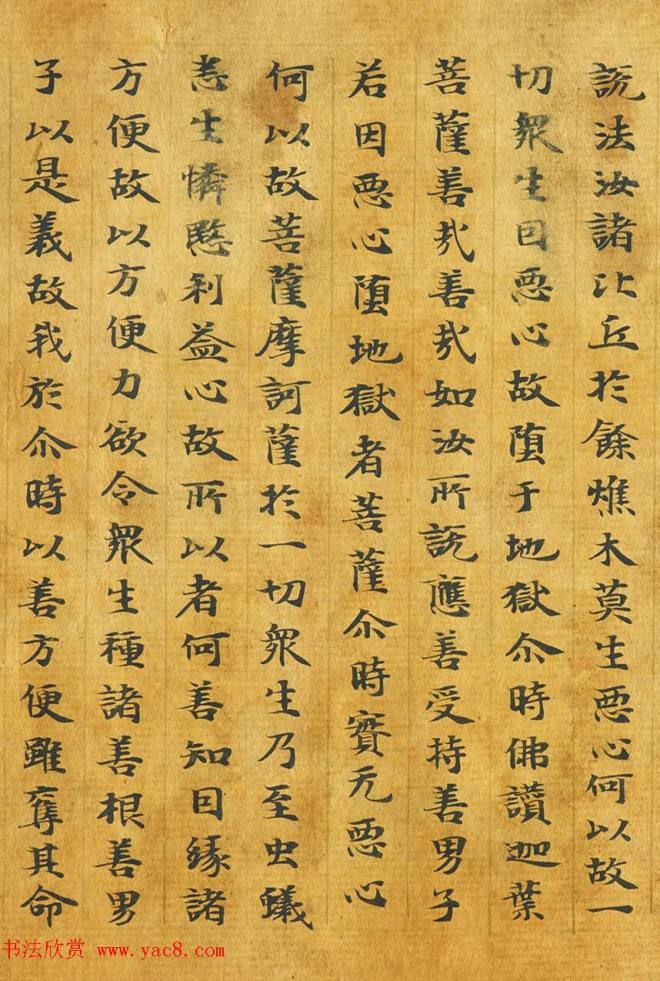 説法汝諸比丘於餘燋木莫生惡心何以故一
切衆生因惡心故堕于地獄尒時佛讃迦葉
菩薩善㢤善㢤如汝所説應善受持善男子
若因惡心堕地獄者菩薩尒時實无惡心
何以故菩薩摩訶薩於一切衆生乃至虫蟻
悉生憐愍利益心故所以者何善知因緣諸
方便故以方便力欲令衆生種諸善根善男
子以是義故我於尒時以善方便雖奪其命
书法欣赏 www.yac8.com